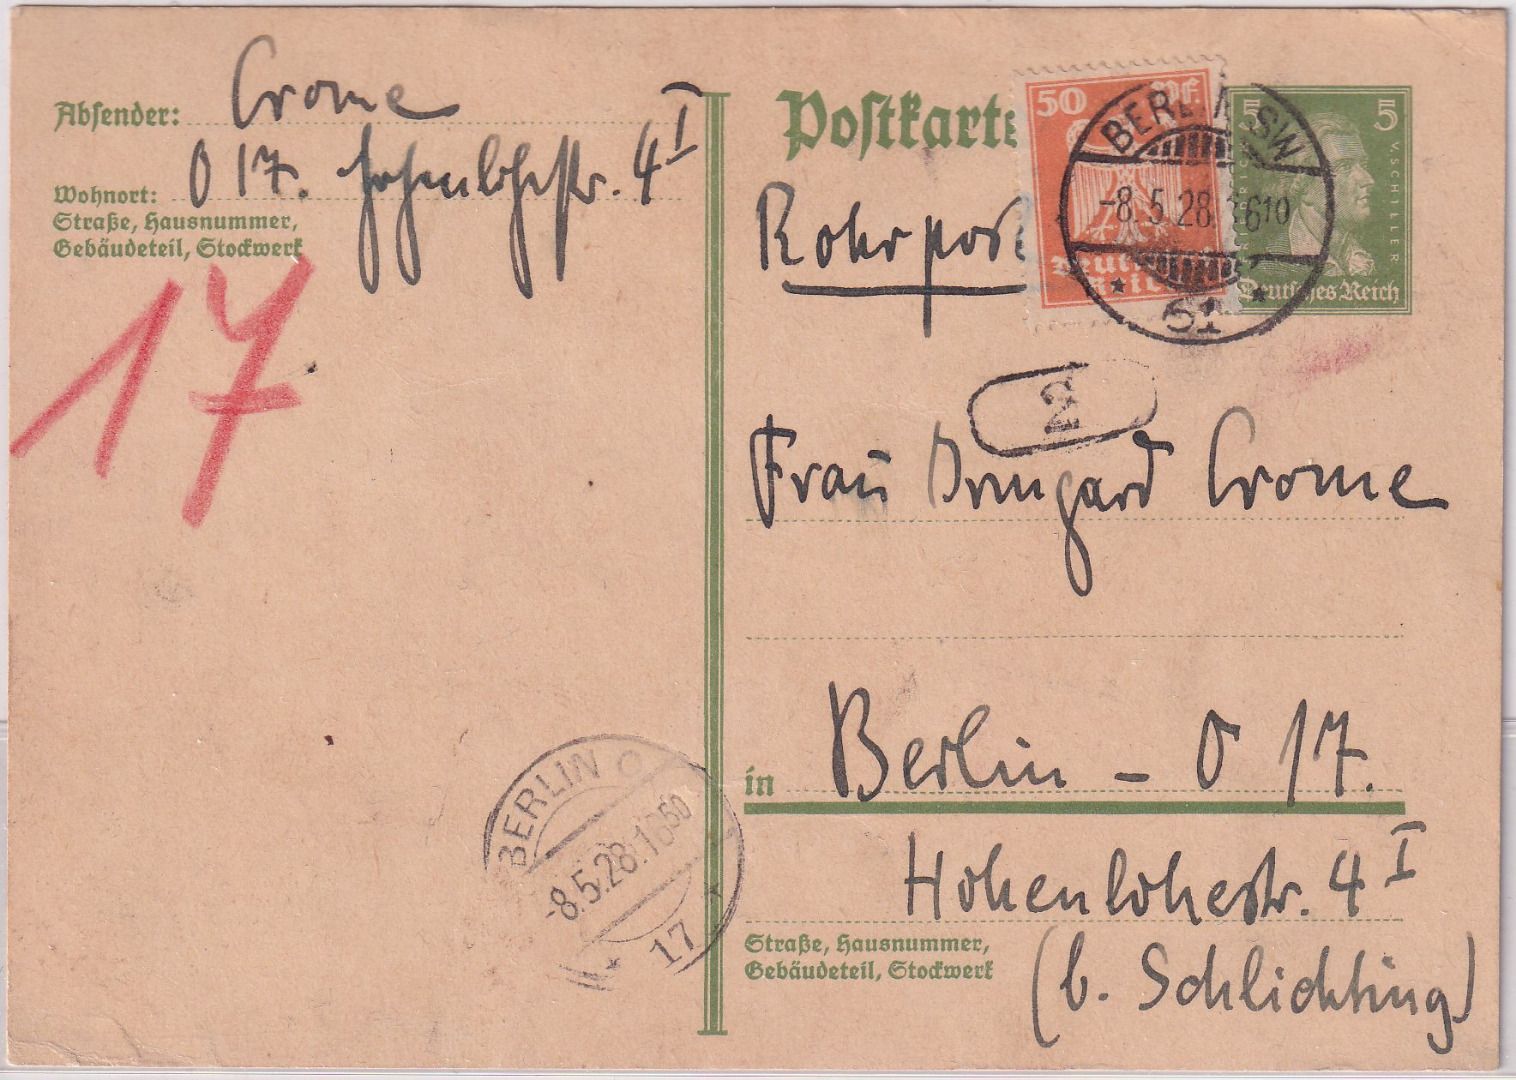 Absender: Crome
O 17. Hohenlohestr. 4 I
Wohnort:
Straße, Hausnummer,
Gebäudeteil, Stockwerk
17
Postkarte
Rohrpost
50 Pf.
Deutsches Reich
BERLIN SW
-8.5.28. 1610
* 61 *
5 5
V SCHILLER
Deutsches Reich
2
Frau Irmgard Crome
in Berlin - O 17.
Hohenlohestr. 4 I
Straße, Hausnummer,
Gebäudeteil, Stockwerk
(b. Schlichting)
BERLIN O
-8.5.28.1650
* 17 *